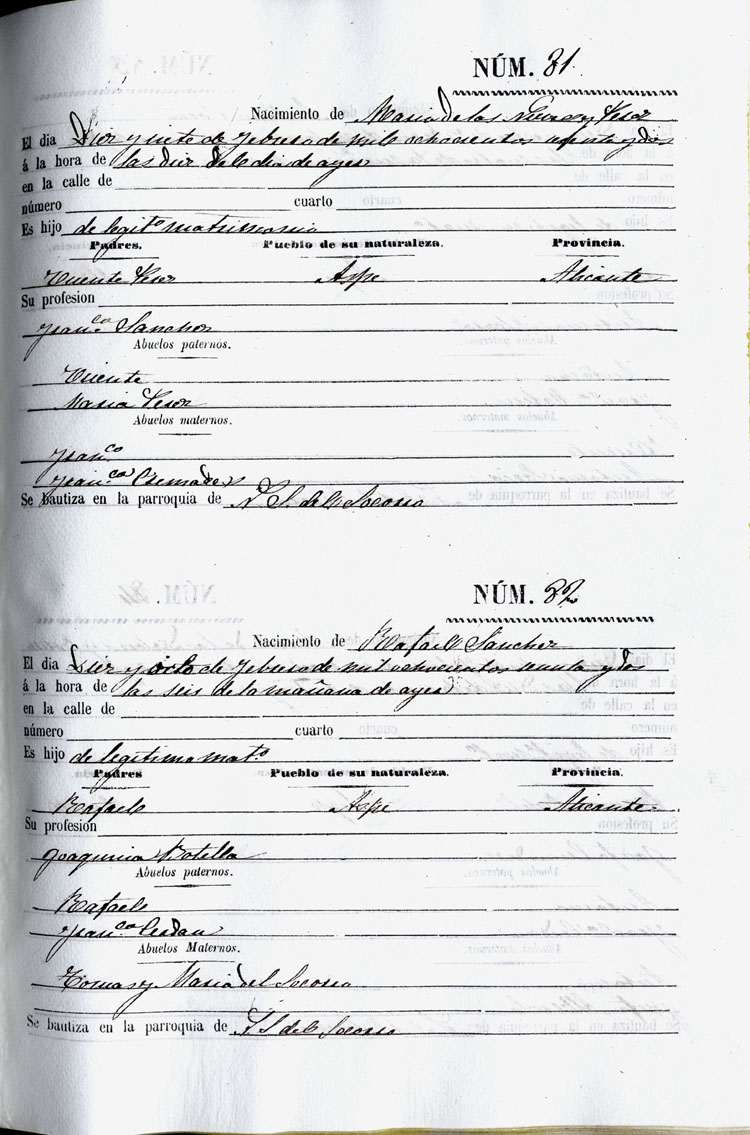 NÚM. 31
Nacimiento de Maria de las Nieves Perez
El dia Diez y siete de Febrero de mil ochocientos
á la hora de las diez del dia de ayer
en la calle de
número cuarto
Es hijo de legitº matrimonio
Padres. Pueblo de su naturaleza. Provincia.
Vicente Perez Aspe Alicante
Su profesion
Franca Sanchez
Abuelos paternos.
Vicente
Maria Perez
Abuelos maternos.
Franco
Franca Cremades
Se bautiza en la parroquia de N. S. del Socorro
NÚM. 32
Nacimiento de Rafael Sanchez
El dia Diez y ocho de Febrero de mil ochocientos y dos
á la hora de las seis de la mañana de ayer
en la calle de
número cuarto
Es hijo de legitimo matº
Padres Pueblo de su naturaleza. Provincia.
Rafael Aspe Alicante
Su profesion
Joaquina Botella
Abuelos paternos.
Rafael
Franca Cerdan
Abuelos Maternos.
Tomas y Maria del Socorro
Se bautiza en la parroquia de N. S. del Socorro